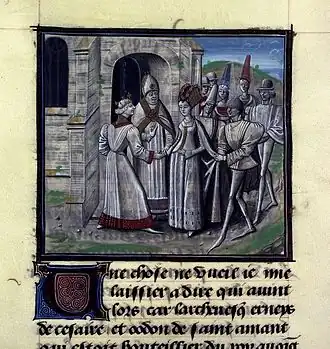 Une chose ne vueil ie mie
laissier a dire qui auint
lors car larcheuesq erneys
de cesaire et oddon de saint amant
qui estoit bouteillier du roy